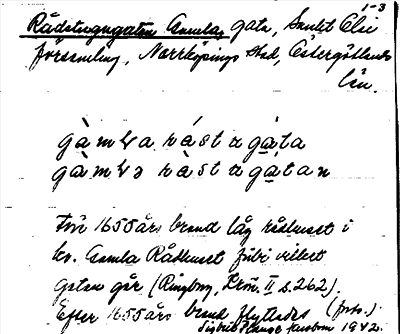 1-3
Rådstugugatan, Gamla, gata, Sankt Olai
församling, Norrköpings stad, Östergötlands
län.
gàmla rást u gàta
gàmlə ràst u gàtan
Före 1655 års brand låg rådhuset i
kv. Gamla Rådhuset förbi vilket
gatan går (Ringborg, Krön. II s. 262).
Efter 1655 års brand flyttades (forts.).
1942.